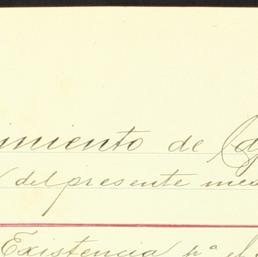 imiento de Ca
del presente mes
Existencia pª el